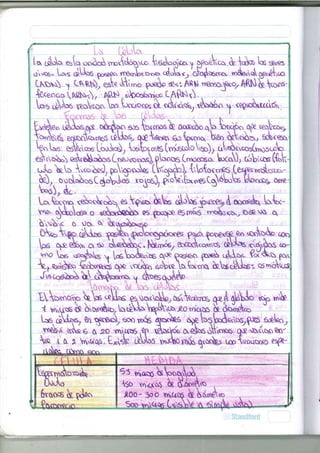 La Célula
La célula es la unidad morfológica fisiológica y genética de todos los seres
vivos. Las células poseen membrana celular, citoplasma material genético
(ADN) y (ARN), este último puede ser: ARN mensajero, ARN de trans-
ferencia (ARNt), ARN ribosómico (ARNr).
Las células realizan las funciones de nutrición, relación y reproducción
Formas de las células
Existen células que adoptan sus formas de acuerdo a la función que realizan,
También encontramos células, que tienen su forma bien definida,
ten las esféricas (óvulos), fusiformes (músculo liso), cilíndricas (músculo
estriado) estrelladas (neuronas), planas (mucosa bucal), cúbicas (folí-
culo de la tiroides), poligonales (hígado), filiformes (espermatozoi-
de), ovaladas (glóbulos rojos), proteiformes (glóbulos blancos, ame-
bas), etc.
La forma redondeada, es típica de las células jóvenes, la for-
ma globulosa o redondeada es porque es más madura, que va a
dividir o va a
Otro tipo células prolongaciones para ponerse en contacto con
las que están a su alrededor. Además, encontramos células rígidas co-
mo los vegetales y las bacterias que poseen pared celular. Por otra par-
te, existen fenómenos que incidan sobre la forma de las células: osmótica
viscosidad del citoplasma y citoesqueleto
Tamaño de las células
El tamaño de las células es variable, así tenemos, que el glóbulo rojo mide
7 micras de diámetro, la célula hepática 20 micras de diámetro
Las células, en general, son más grandes que las bacterias, pues suelen,
medir entre 6 a 20 micras en relación a estas últimas que varían en-
tre 1 a 2 micras. Existe células mucho más grandes con funciones espe-
ciales como son
CÉLULA MEDIDA
Espermatozoide 53 micras de longitud
Óvulo 150 micras de diámetro
Granos de polen 200 - 300 micras de diámetro
Paramecio 500 micras (visible a simple vista)
Standford